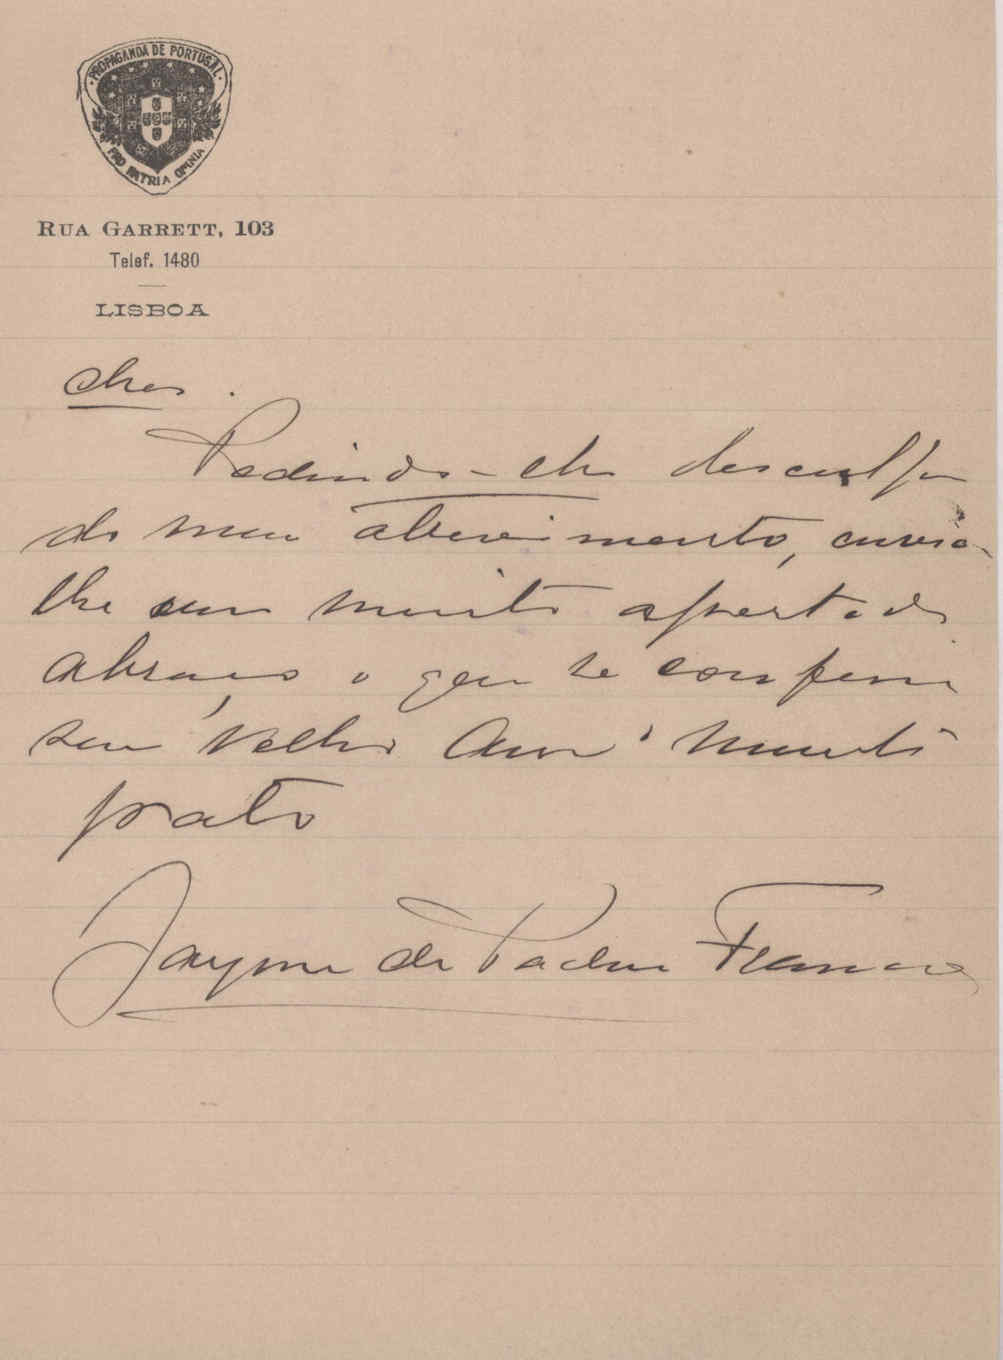 PROPAGANDA DE PORTUGAL
PRO PATRIA OMNIA
RUA GARRETT, 103
Telef. 1480
LISBOA
Pedindo-lhe desculpa
do meu atrevimento, envia-
lhe um muito apertado
abraço o que se confessa
seu velho Amº muito
grato
Jayme de Padua Franco